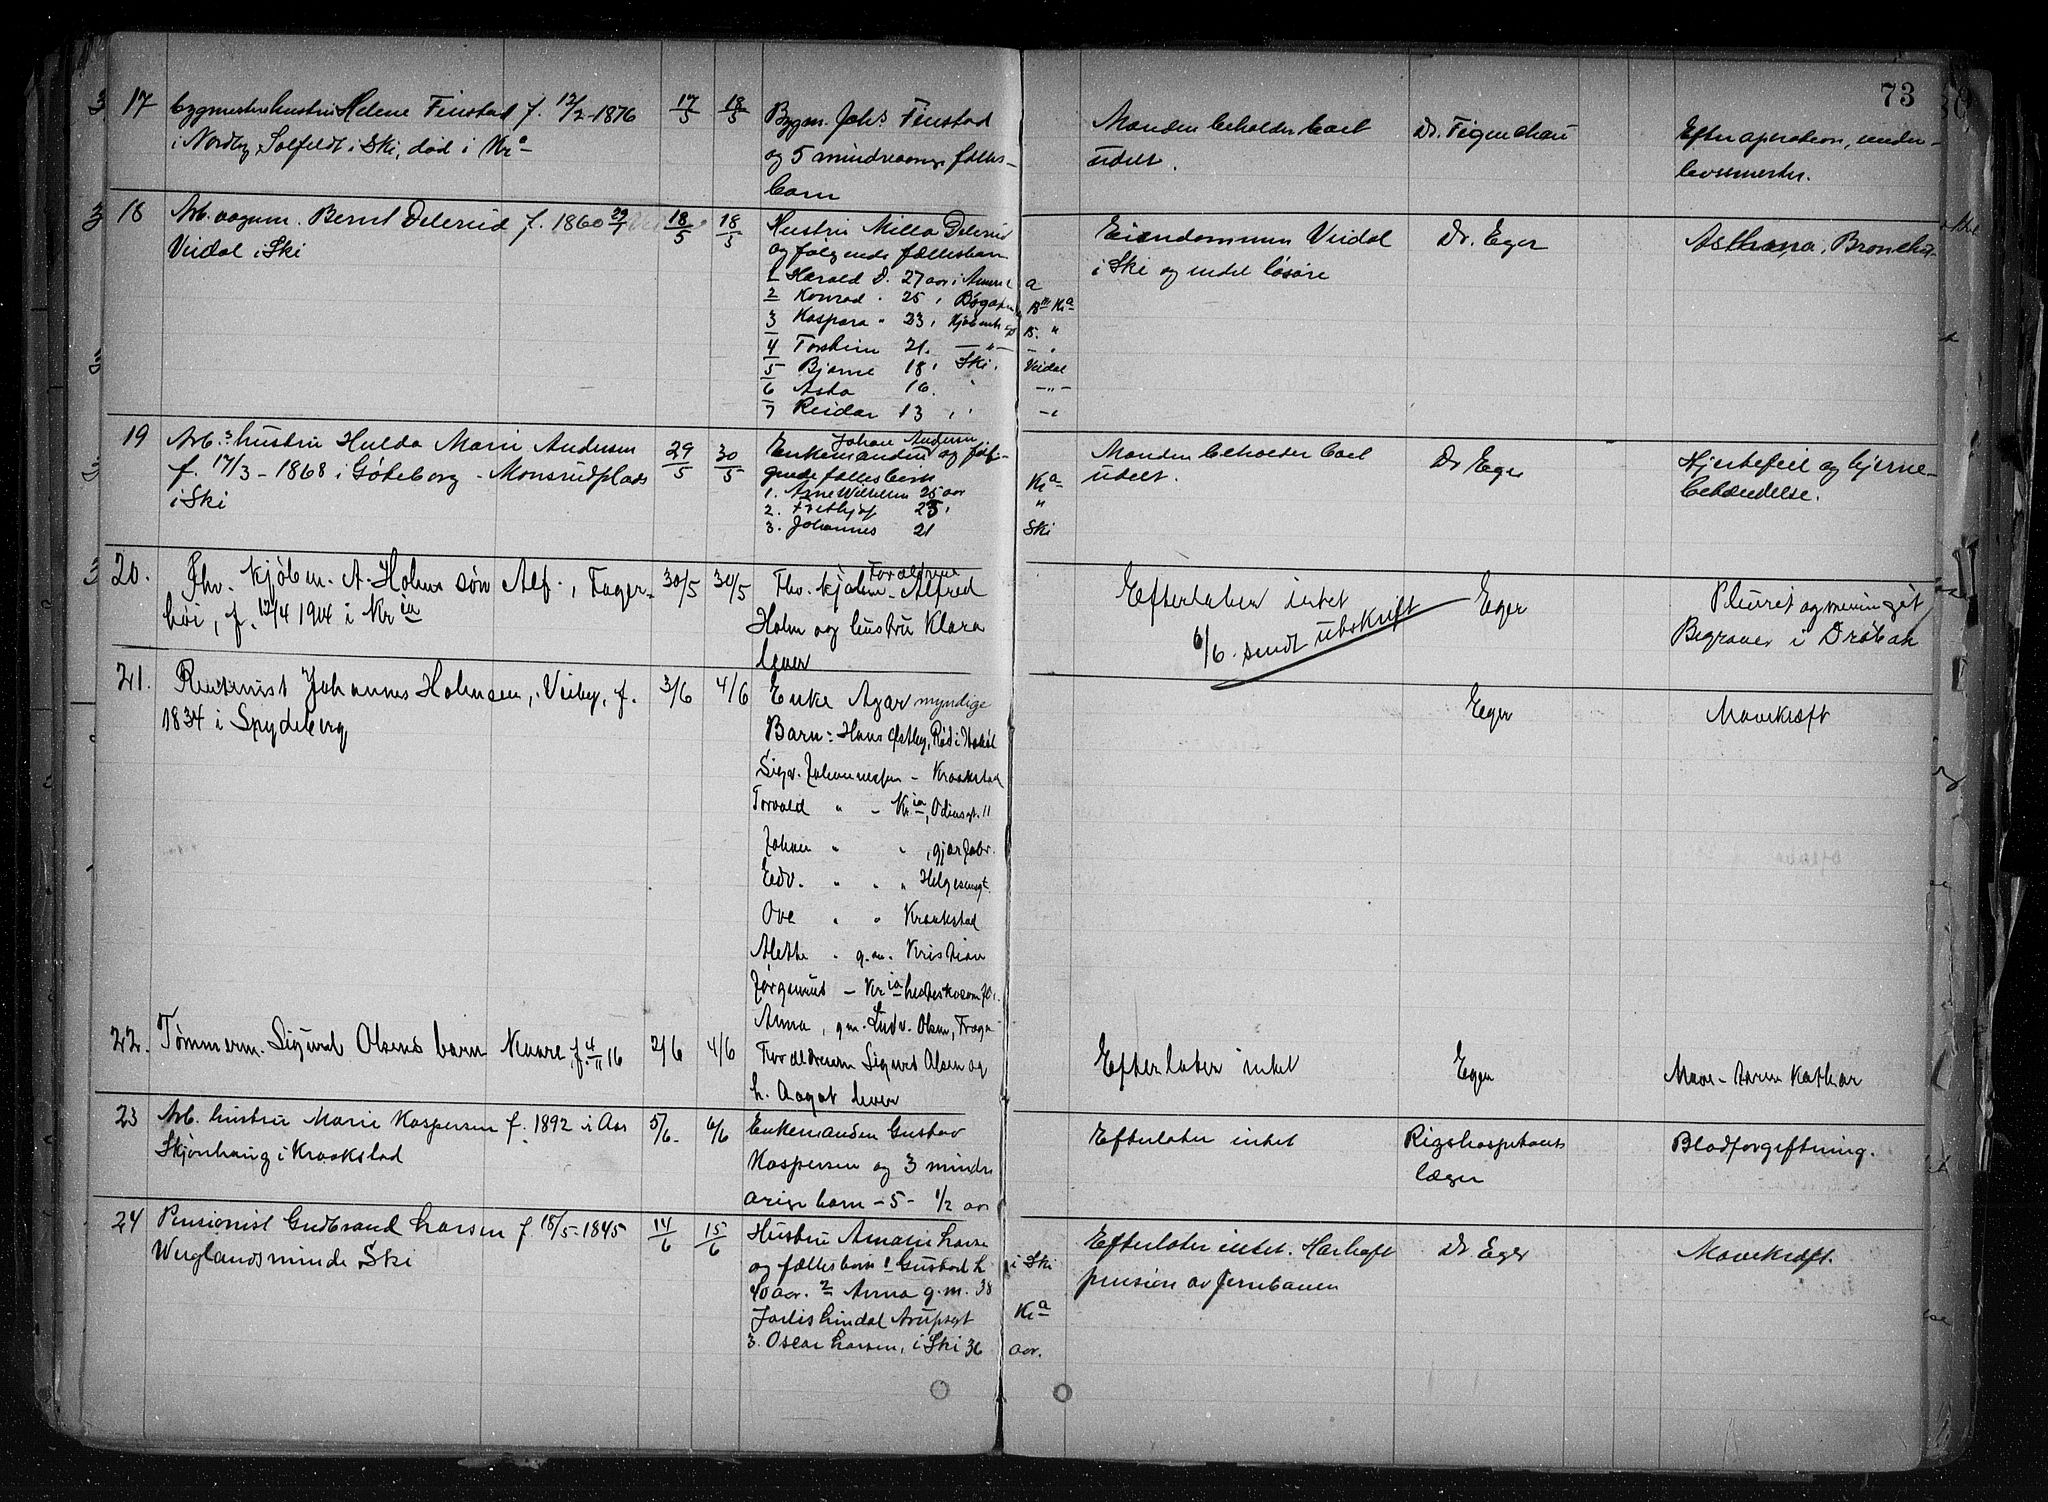 73
17 bygmesterhustru Helene Finstad f. 12/2-1876 17/5 18/5 Bygm. Johs Finstad Manden beholder boet Dr. Efter operation, under-
i Nordby, Solfeldt i Ski, død i Kra og 5 mindreaarige fælles- udelt.
barn
18 Arb. Bernt Delerud f. 1860 18/5 18/5 Hustru Milla Delerud Eiendommen Vidal Dr. Eger Asthma, Bronchit
Vidal i Ski og følgende fællesbarn i Ski og endel løsøre
1 Harald D. 27 aar i Amerik a
2 Konrad " 25 "
3 Kaspara " 23 "
4 Torstein 21. — " —
5 Bjarne 18 " Ski. Vidal
6 Asta 16. " — " —
7 Reidar 13 " "
19 Arb.s hustru Hulda Marie Andersen 29/5 30/5 Enkemanden Johan Andersen og føl- Manden beholder boet Dr Eger Hjertefeil og hjerne-
f. 17/3-1868 i Gøteborg - Monsrudplads gende fællesbørn udelt. betændelse.
i Ski 1. Arne Wilhelm 25 aar Kra
2. Frithjof 23 " "
3. Johannes 21 Ski
20. Fhv. kjøbm. A. Holms søn Alf, Fager- 30/5 30/5 Forældrene Fhv. kjøbm. Alfred Efterlater intet Eger Pleurit og meningit
høi, f. 12/4 1904 i Kria Holm og hustru Klara 6/6. sendt utskrift Begraves i Drøbak
lever
21. Rentenist Johannes Holmsen, Visby, f. 3/6 4/6 Enke Agar myndige Eger Mavekræft
1834 i Spydeberg Barn: Hans Østby, Rød i
Sigv. Johannessen - Kraakstad
Torvald " - Kria, Odinsgt. 11
Johan " "
Edv. " " " Helgesensgt.
Ove " " Kraakstad
Alette " g.m. Kristian
Jørgensen - Kria
Anna, g.m. Ludv. Olsen,
22. Tømmerm. Sigurd Olsens barn Kaare, f. 4/11 16 2/6 4/6 Forældrene Sigurd Olsen og Efterlater intet Eger Mave-tarm kathar
h. Aagot lever
23 Arb. hustru Marie Kaspersen f. 1892 i Aas 5/6. 6/6 Enkemanden Gustav Efterlater intet Rigshospitalets Blodforgiftning.
Skjønhaug i Kraakstad Kaspersen og 3 mindre læger
arige barn - 5 - 1/2 aar
24 Pensionist Gudbrand Larsen f. 18/5-1845 14/6 15/6 Hustru Amalie Larse Efterlater intet. Har havt Dr. Eger Mavekræft.
Werglandsminde Ski og fællesbørn 1 Gustav L i Ski pension av Jernbanen
40 aar. 2 Anna g.m. 38
Lindal Arupsgt Kra
3. Oscar Larsen, i Ski 36 aar.